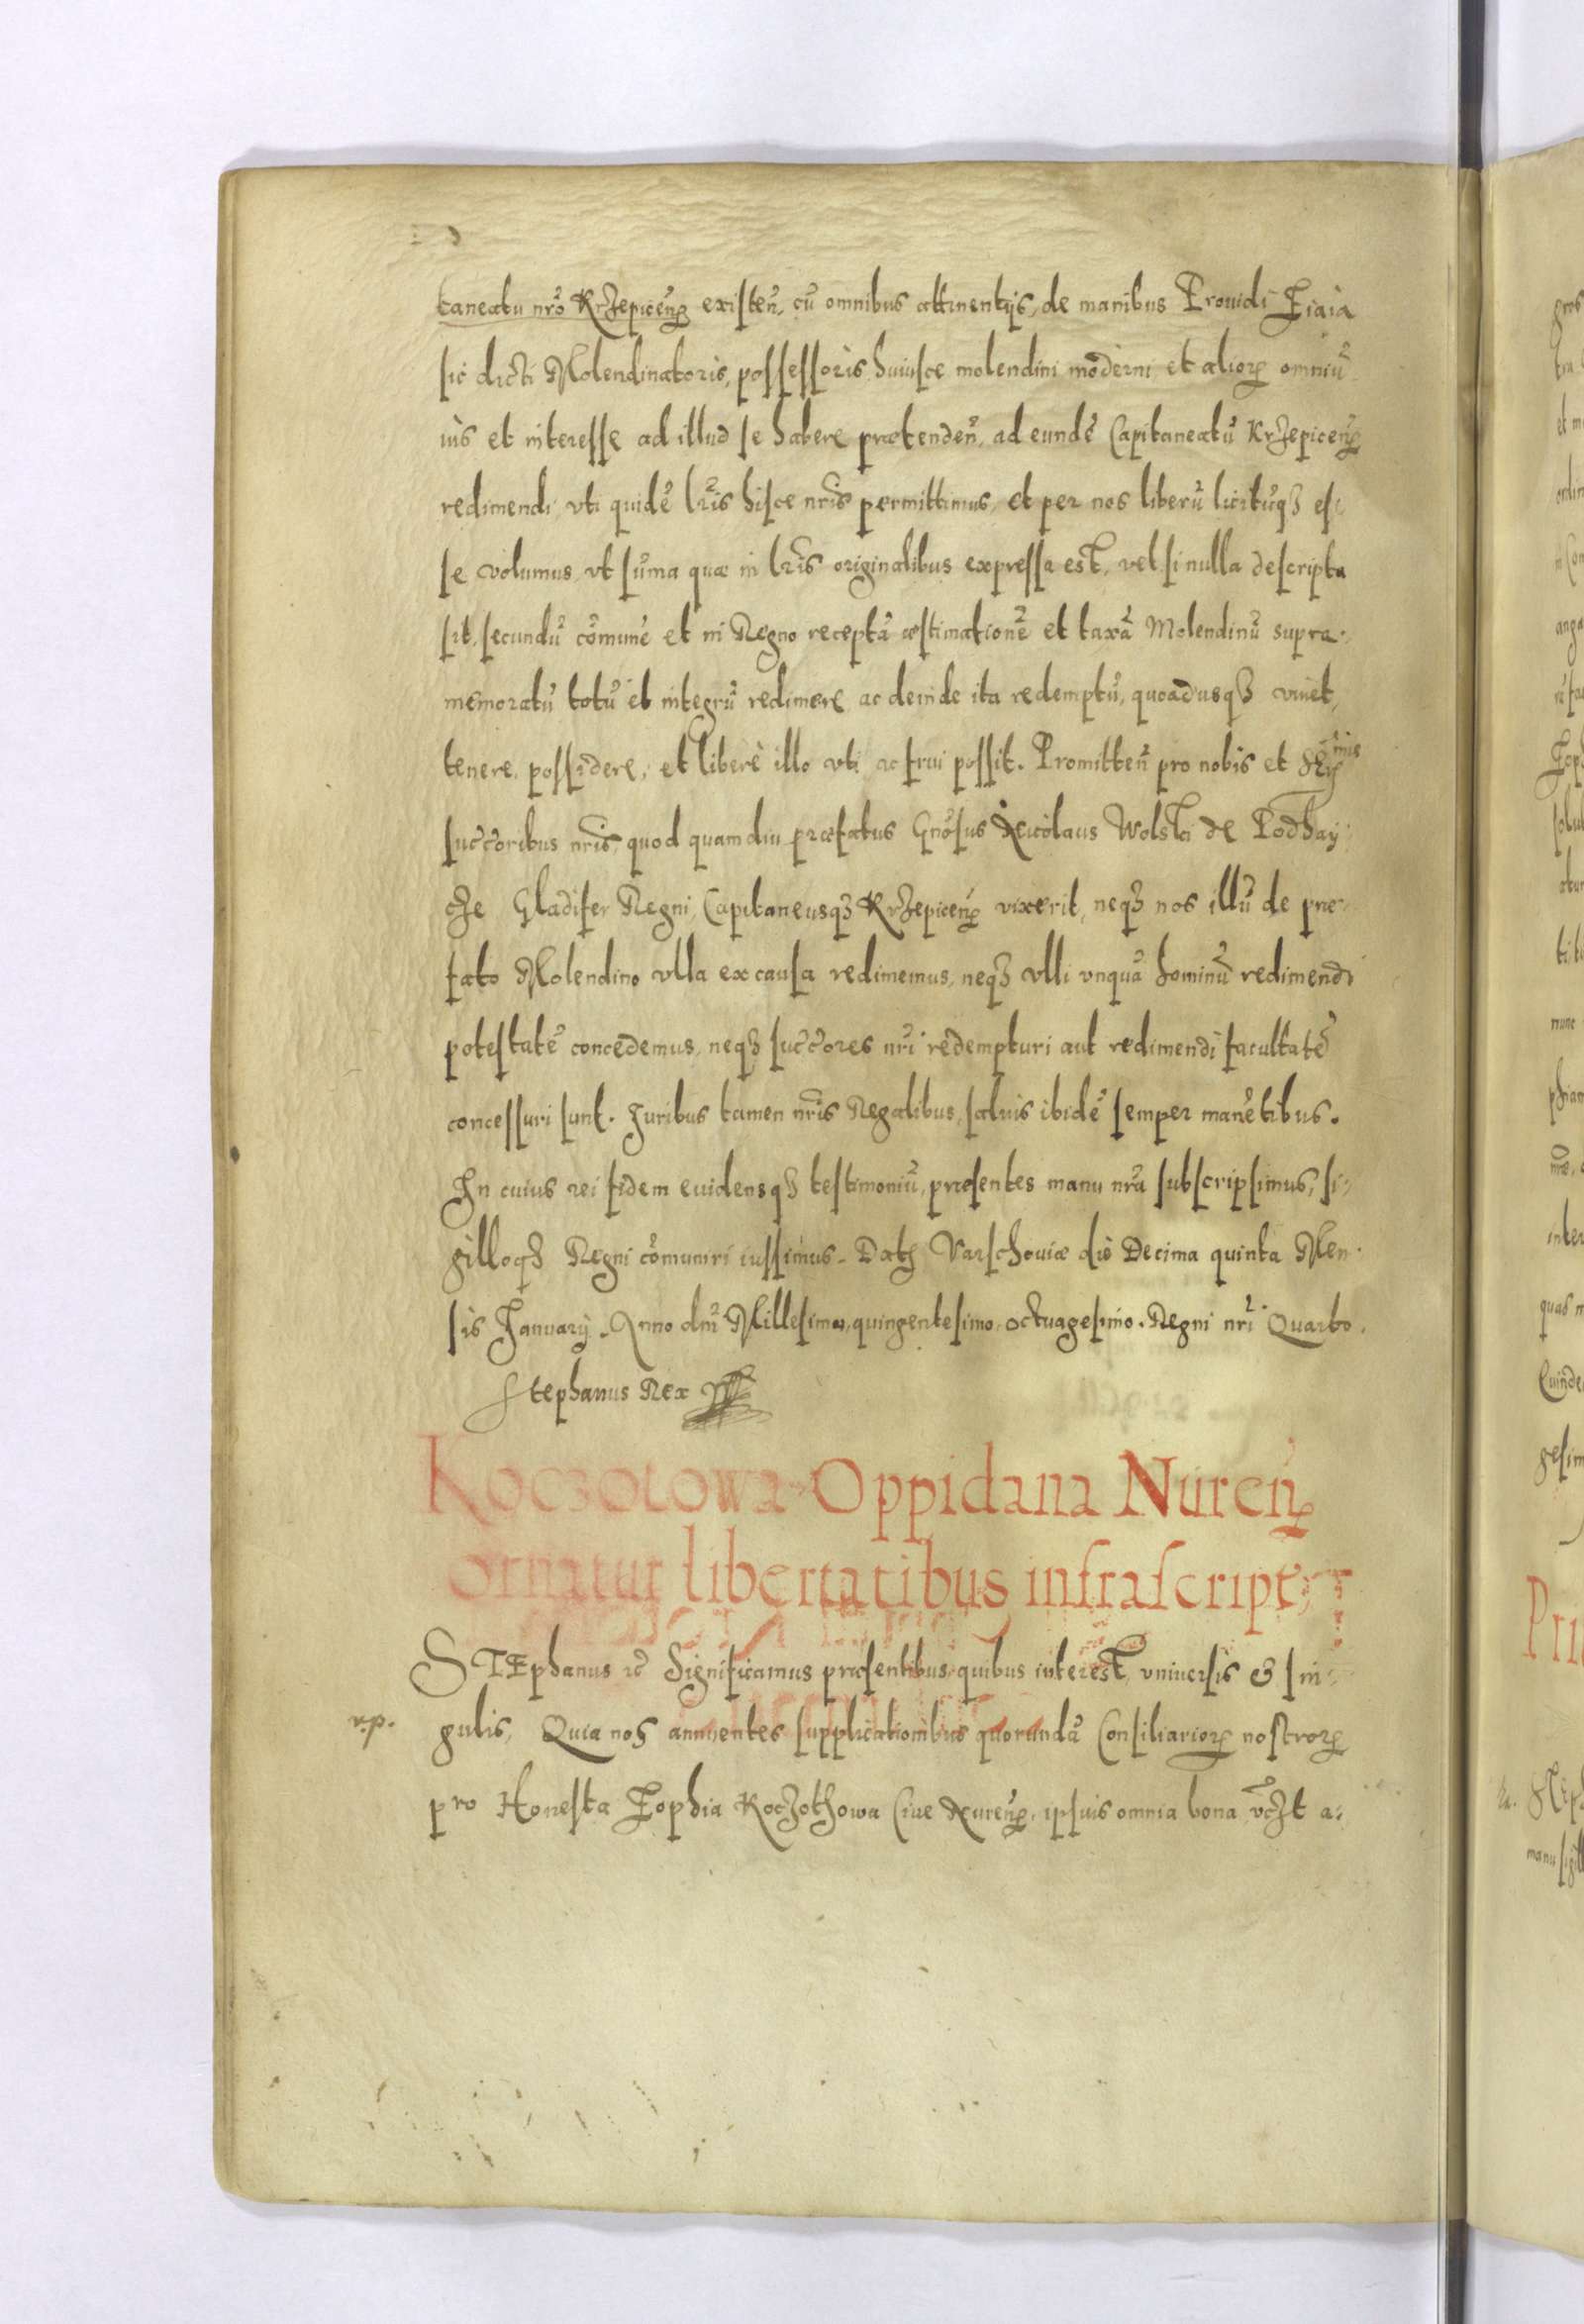 taneatu nr̃o Krzepiceñ existeñ, cũ omnibus attinentijs, de manibus Prouidi Ziaia
sic dicti Molendinatoris, possessoris huiusce molendini moderni et alior omniũ
ius et interesse ad illud se habere prætendeñ, ad eundẽ Capitaneatũ Krzepiceñ
redimendi, vti quidẽ lr̃is hisce nr̃is permittimus, et per nos liberũ licitũqꝫ es-
se volumus, vt sũma quæ in lr̃is originalibus expressa est, vel si nulla descripta
sit, secundũ cõmunẽ et in Regno receptã æstimationẽ et taxã Molendinũ supra-
memoratũ totũ et integrũ redimere ac deinde ita redemptũ, quoadusqꝫ viuet,
tenere, possidere, et liberè illo vti ac frui possit. Promitteñ pro nobis et
succ̃oribus nr̃is, quod quamdiu præfatus Gñosus Nicolaus Wolski de Podhay-
cze Gladifer Regni, Capitaneusqꝫ Krzepiceñ vixerit, neqꝫ nos illũ de præ-
fato Molendino vlla ex causa redimemus, neqꝫ vlli vnquã hominũ redimendi
potestatẽ concedemus, neqꝫ succ̃ores nr̃i redempturi aut redimendi facultatẽ
concessuri sunt. Juribus tamen nr̃is Regalibus, saluis ibidẽ semper manẽtibus.
In cuius rei fidem euidensqꝫ testimoniũ, præsentes manu nr̃a subscripsimus, si-
gilloqꝫ Regni cõmuniri iussimus. Datꝫ Varschouiæ die Decima quinta Men-
sis Januarij. Anno dñi Millesimo, quingentesimo, octuagesimo. Regni nr̃i Quarto.
Stephanus Rex
Koczotowa Oppidana Nureñ
ornatur libertatibus infrascript
STEphanus &c̃ Significamus præsentibus quibus interest, vniuersis & sin-
v.p. gulis, Quia nos annuentes supplicationibus quorundã Consiliarior nostror
pro Honesta Zophia Koczothowa Ciue Nureñ, ipsius omnia bona vc̃zt a-